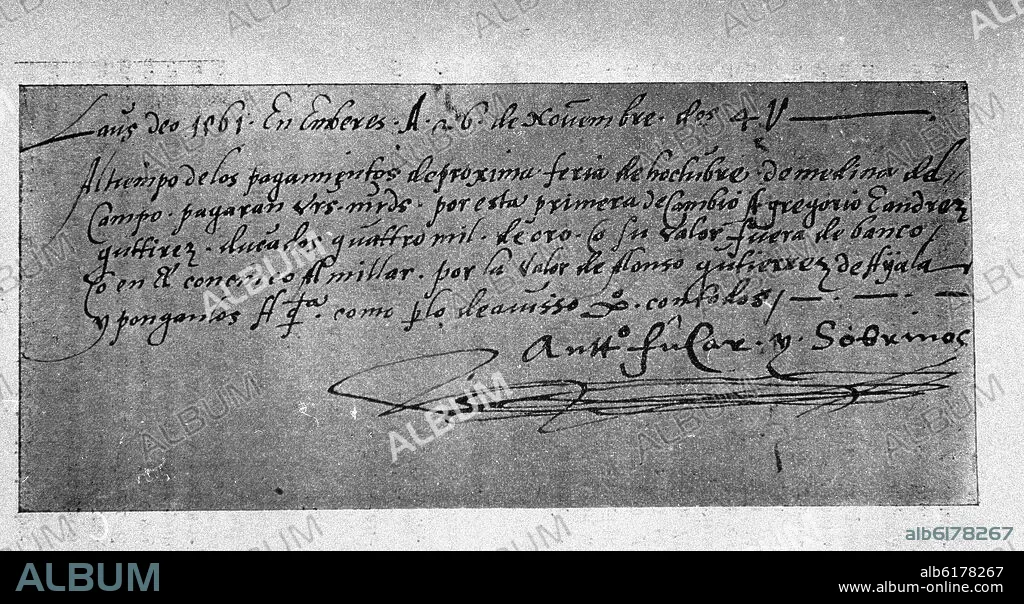 Laus deo 1561. En Enberes. A. 26. de Nouiembre. dos 4 U
Al tiempo de los pagamientos de proxima feria de hoctubre de medina del
Campo. pagaran vrs. mrds. por esta primera de Cambio A gregorio E andrez
guttirez. ducados quattro mil. de oro. o su valor fuera de banco
Con el cinco Al millar. por la valor de Alonso gutierrez de Ayala
y ponganlos A qta. como plo de auisso con todos
Antto fucar. y. Sobrinos
ALBUM
alb6178267
alb6178267
www.album-online.com